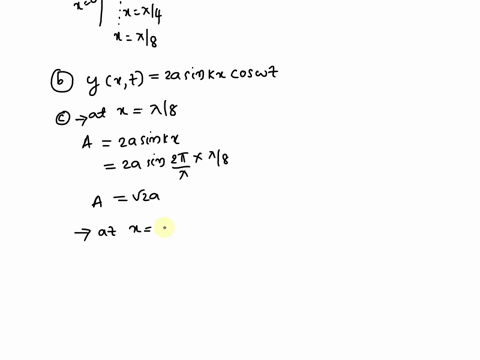 x=0
x=λ/4
x=λ/8
(b) y(x,t) = 2a sin kx cos ωt
(c) → at x = λ/8
A = 2a sin kx
= 2a sin 2π/λ × λ/8
A = √2a
→ at x =